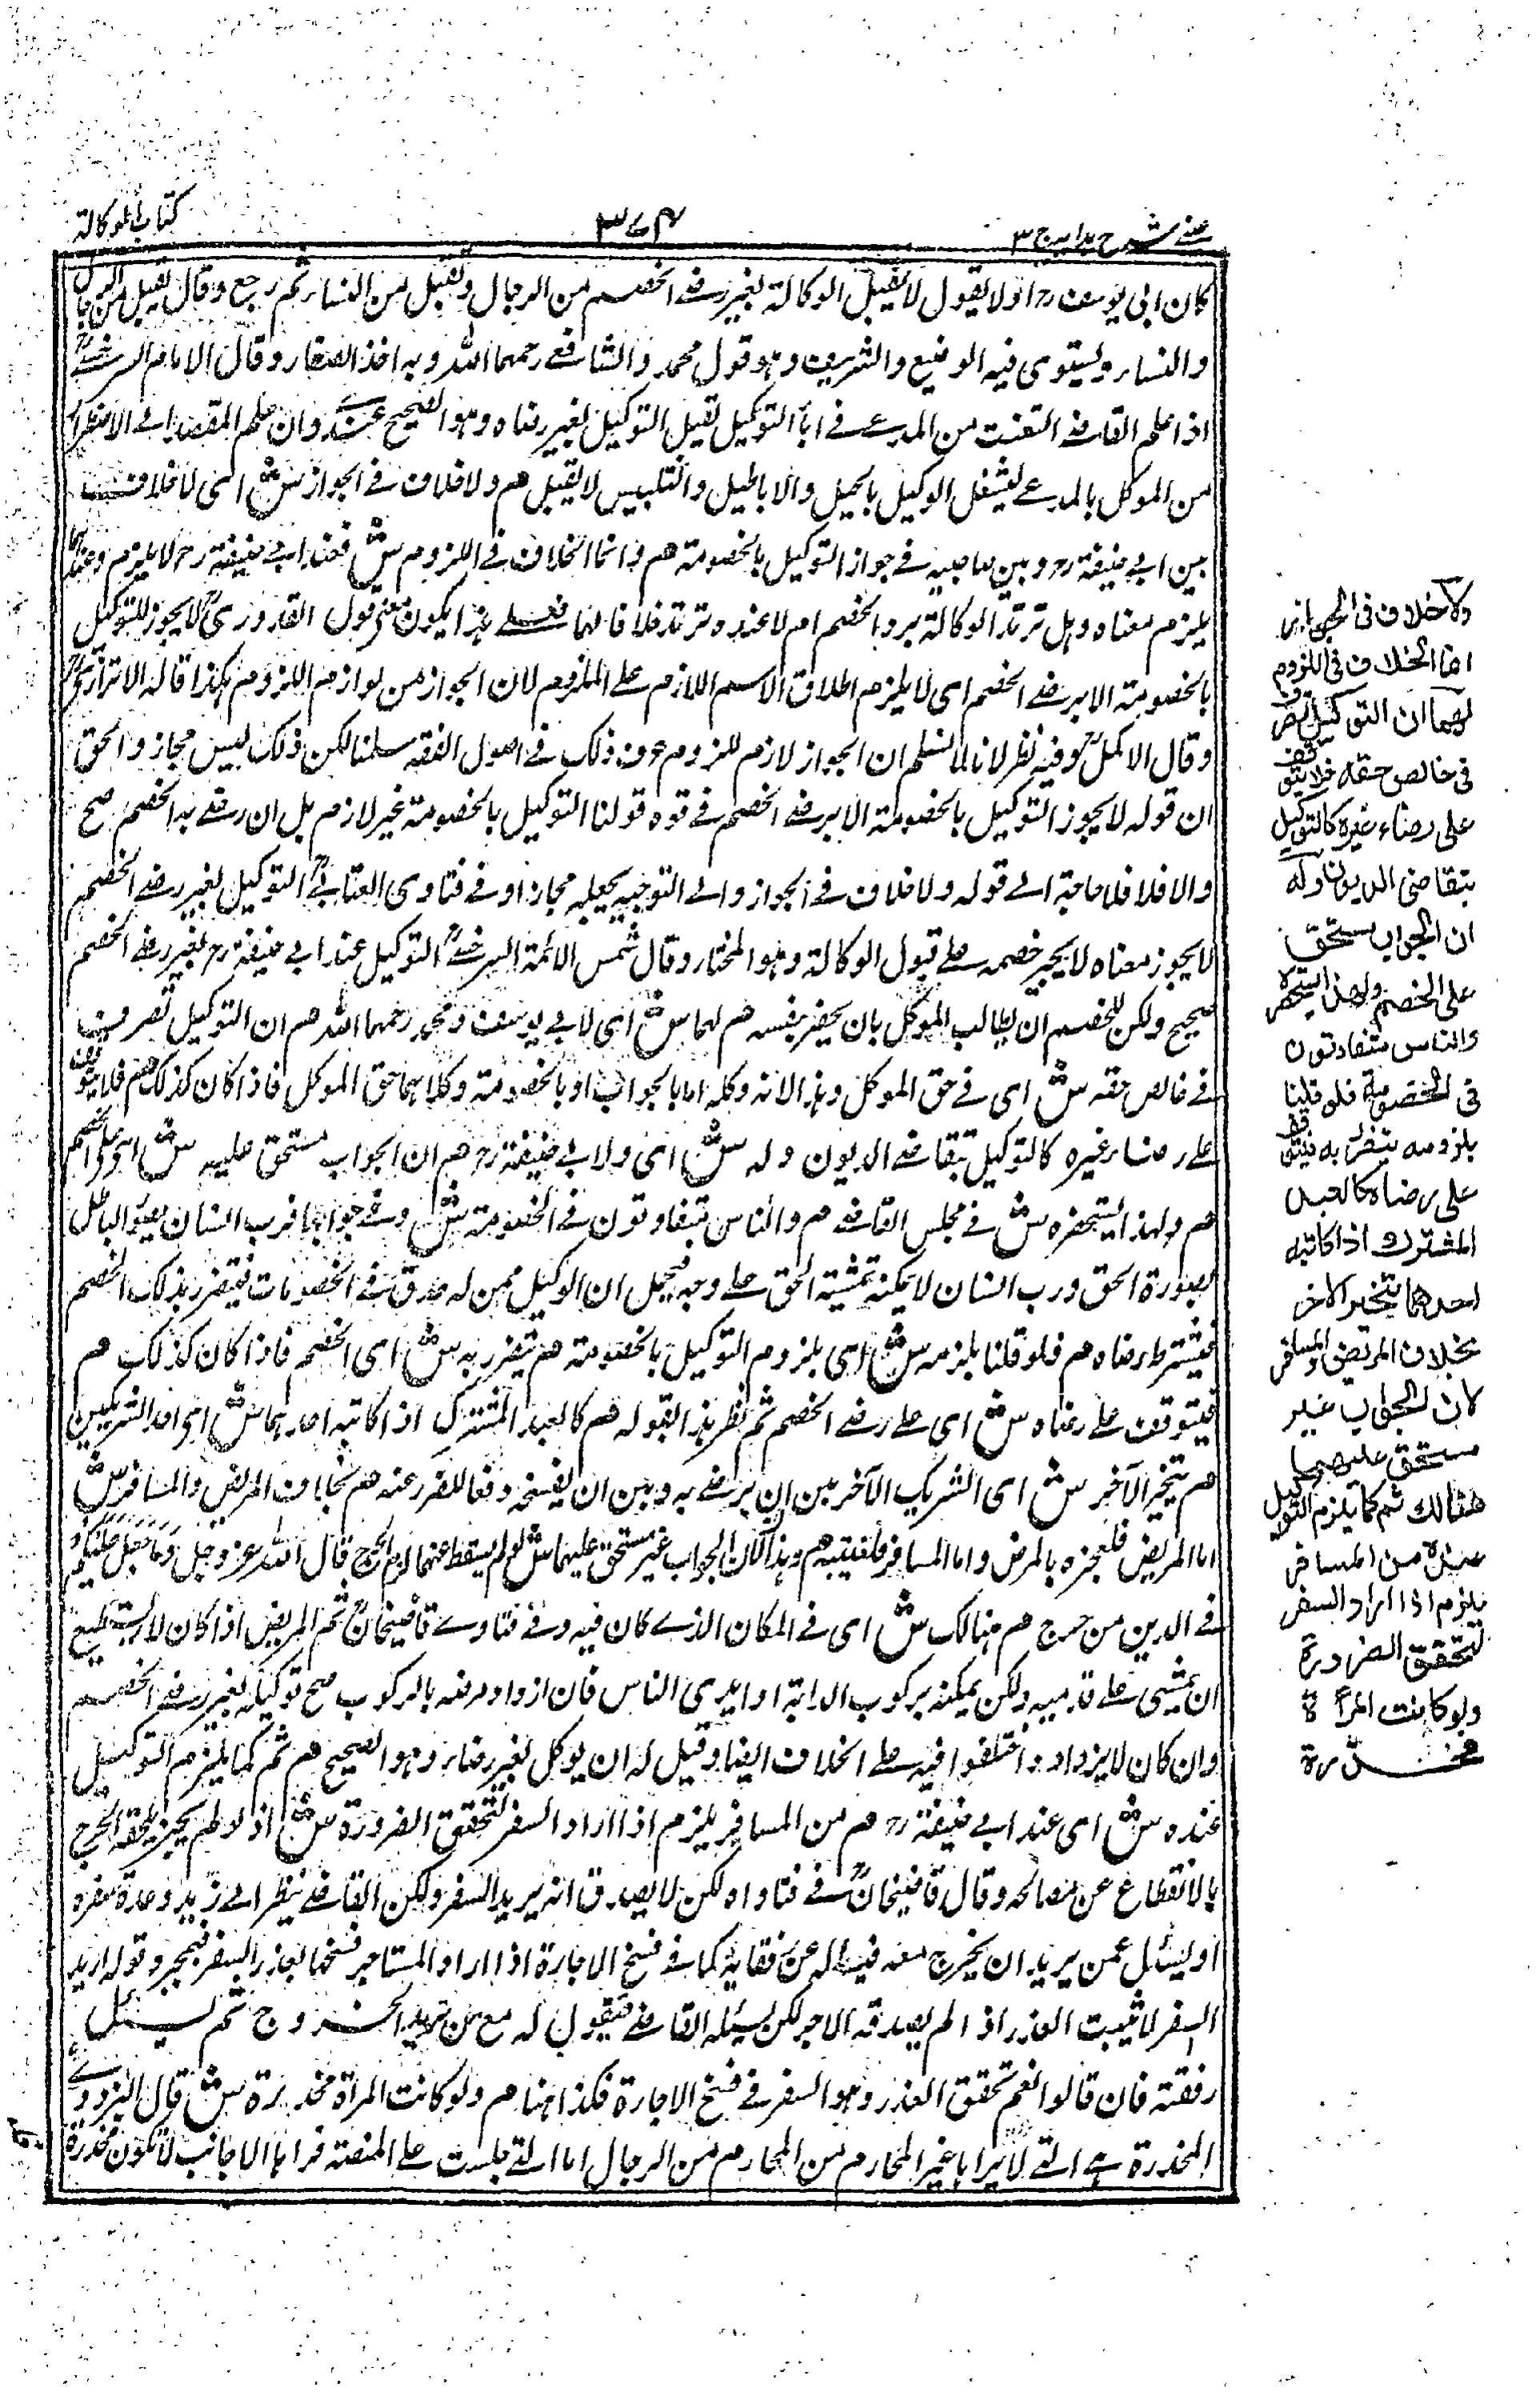 عینے شرح ہدایہ ج ۳
۳۷۴
کتاب الوکالة
کان ابی یوسف رح اولا یقول لا یقبل الوکالة بغیر رضے الخصم من الرجال ویقبل من النساء ثم رجع وقال یقبل من الرجال
والنساء ویستوی فیہ الوضیع والشریف وہو قول محمد والشافعے رحمہما اللہ وبہ اخذ الصفار وقال الامام السرخسےؒ
اذا علم القاضے التعنت من المدعے فے ابأ التوکیل یقبل التوکیل بغیر رضاہ وہو الصحیح عندے وان علم القصد الے الاضرار
من الموکل بالمدعے لیشغل الوکیل بالحیل والاباطیل والتلبیس لا یقبل ھم ولا خلاف فے الجواز ش اے لا خلاف
بین ابے حنیفة رح وبین صاحبیہ فے جواز التوکیل بالخصومة ھم وانما الخلاف فے اللزوم ش فعند ابے حنیفة رح لا یلزم وعندہما
یلزم معناہ وہل ترتد الوکالة برد الخصم ام لا عندہ ترتد خلافا لہما فعلے ہذا یکون معنے قول القدوریؒ لا یجوز للتوکیل
بالخصومة الا برضے الخصم ای لا یلزم اطلاق الاسم اللازم علے الملزوم لان الجواز من لوازم اللزوم ہکذا قالہ الاترازیؒ
وقال الاکملؒ وفیہ نظر لانا لا نسلم ان الجواز لازم للزوم عرف ذلک فے اصول الفقہ سلمنا لکن ذلک لیس مجاز والحق
ان قولہ لا یجوز التوکیل بالخصومة الا برضے الخصم فے قوة قولنا التوکیل بالخصومة غیر لازم بل ان رضے بہ الخصم صح
والا فلا فلا حاجة الے قولہ ولا خلاف فے الجواز والے التوجیہ بجعلہ مجازا وفے فتاوی العتابےؒ التوکیل بغیر رضے الخصم
لا یجوز معناہ لا یجبر خصمہ علے قبول الوکالة وہو المختار وقال شمس الائمة السرخسےؒ التوکیل عند ابے حنیفة رح بغیر رضے الخصم
صحیح ولکن للخصم ان یطالب الموکل بان یحضر بنفسہ ھم لہما ش ای لابے یوسف ومحمد رحمہما اللہ ھم ان التوکیل تصرف
فے خالص حقہ ش ای فے حق الموکل وہذا لانہ وکلہ اما بالجواب او بالخصومة وکلاہما حق الموکل فاذا کان کذلک ھم فلا یتوقف
علے رضاء غیرہ کالتوکیل بتقاضے الدیون ولہ ش ای ولابے حنیفة رح ھم ان الجواب مستحق علیہ ش ای علے الخصم
ھم ولہذا یستحضرہ ش فے مجلس القاضے ھم والناس یتفاوتون فے الخصومة ش وفے جوابہا فرب انسان یصور الباطل
بصورة الحق ورب انسان لا یمکنہ تمشیة الحق علے وجہ فیحتمل ان الوکیل ممن لہ حذق فے الخصومات فیتضرر بذلک الخصم
فیشترط رضاہ ھم فلو قلنا بلزومہ ش ای بلزوم التوکیل بالخصومة ھم یتضرر بہ ش ای الخصم فاذا کان کذلک ھم
فیتوقف علے رضاہ ش ای علے رضے الخصم ثم نظر ہذا بقولہ ھم کالعبد المشترک اذا کاتبہ احدہما ش ای احد الشریکین
ھم یتخیر الآخر ش ای الشریک الآخر بین ان یرضے بہ وبین ان یفسخہ دفعا للضرر عنہ ھم بخلاف المریض والمسافر ش
اما المریض فلعجزہ بالمرض واما المسافر فلغیبتہ ھم وہذا لان الجواب غیر مستحق علیہما ش لو لم یسقط عنہما لزم الحرج قال اللہ عز وجل وَمَا جَعَلَ عَلَيْكُمْ
فے الدین من حرج ھم ہنالک ش ای فے المکان الذے کان فیہ وفے فتاوے قاضیخانؒ ثم المریض اذا کان لا یستطیع
ان یمشی علے قدمیہ ولکن یمکنہ برکوب الدابة او ایدی الناس فان ازداد مرضہ بالرکوب صح توکیلہ بغیر رضے الخصم
وان کان لا یزداد واختلفوا فیہ علے الخلاف ایضا وقیل لہ ان یوکل بغیر رضاہ وہو الصحیح ھم ثم کما یلزم التوکیل
عندہ ش ای عند ابے حنیفة رح ھم من المسافر یلزم اذا اراد السفر لتحقق الضرورة ش اذ لو لم یجز یلحقہ الحرج
بالانقطاع عن مصالحہ وقال قاضیخانؒ فے فتاواہ لکن لا یصدق انہ یرید السفر ولکن القاضے ینظر الے زیہ وعدة سفرہ
او یسئل عمن یرید ان یخرج معہ فیسالہ عن رفقایہ کما فے فسخ الاجارة اذا اراد المستاجر فسخہا بعذر السفر فبمجرد قولہ ارید
السفر لا یثبت العذر اذا لم یصدقہ الاجر لکن یسئلہ القاضے فیقول لہ مع من ترید الخروج ثم یسئل
رفقتہ فان قالوا نعم تحقق العذر وہو السفر فے فسخ الاجارة فکذا ہنا ھم ولو کانت المرأة مخدرة ش قال البزدوےؒ
المخدرة ہے التے لا یراہا غیر المحارم من المحارم من الرجال اما التے جلست علے المنصة فراہا الاجانب لا تکون مخدرة
ولا خلاف فی الجواز
انما الخلاف فی اللزوم
لهما ان التوکیل تصرف
فی خالص حقه فلا یتوقف
علی رضاء غیره کالتوکیل
بتقاضی الدیون وله
ان الجواب مستحق
علی الخصم ولهذا یستحضره
والناس متفاوتون
فی الخصومة فلو قلنا
بلزومه یتضرر به فیتوقف
علی رضاه کالعبد
المشترك اذا کاتبه
احدهما یتخیر الاخر
بخلاف المریض والمسافر
لان الجواب غیر
مستحق علیهما
هنالك ثم کما یلزم التوکیل
عنده من المسافر
یلزم اذا اراد السفر
لتحقق الضرورة
ولو کانت المرأة
مخدرة